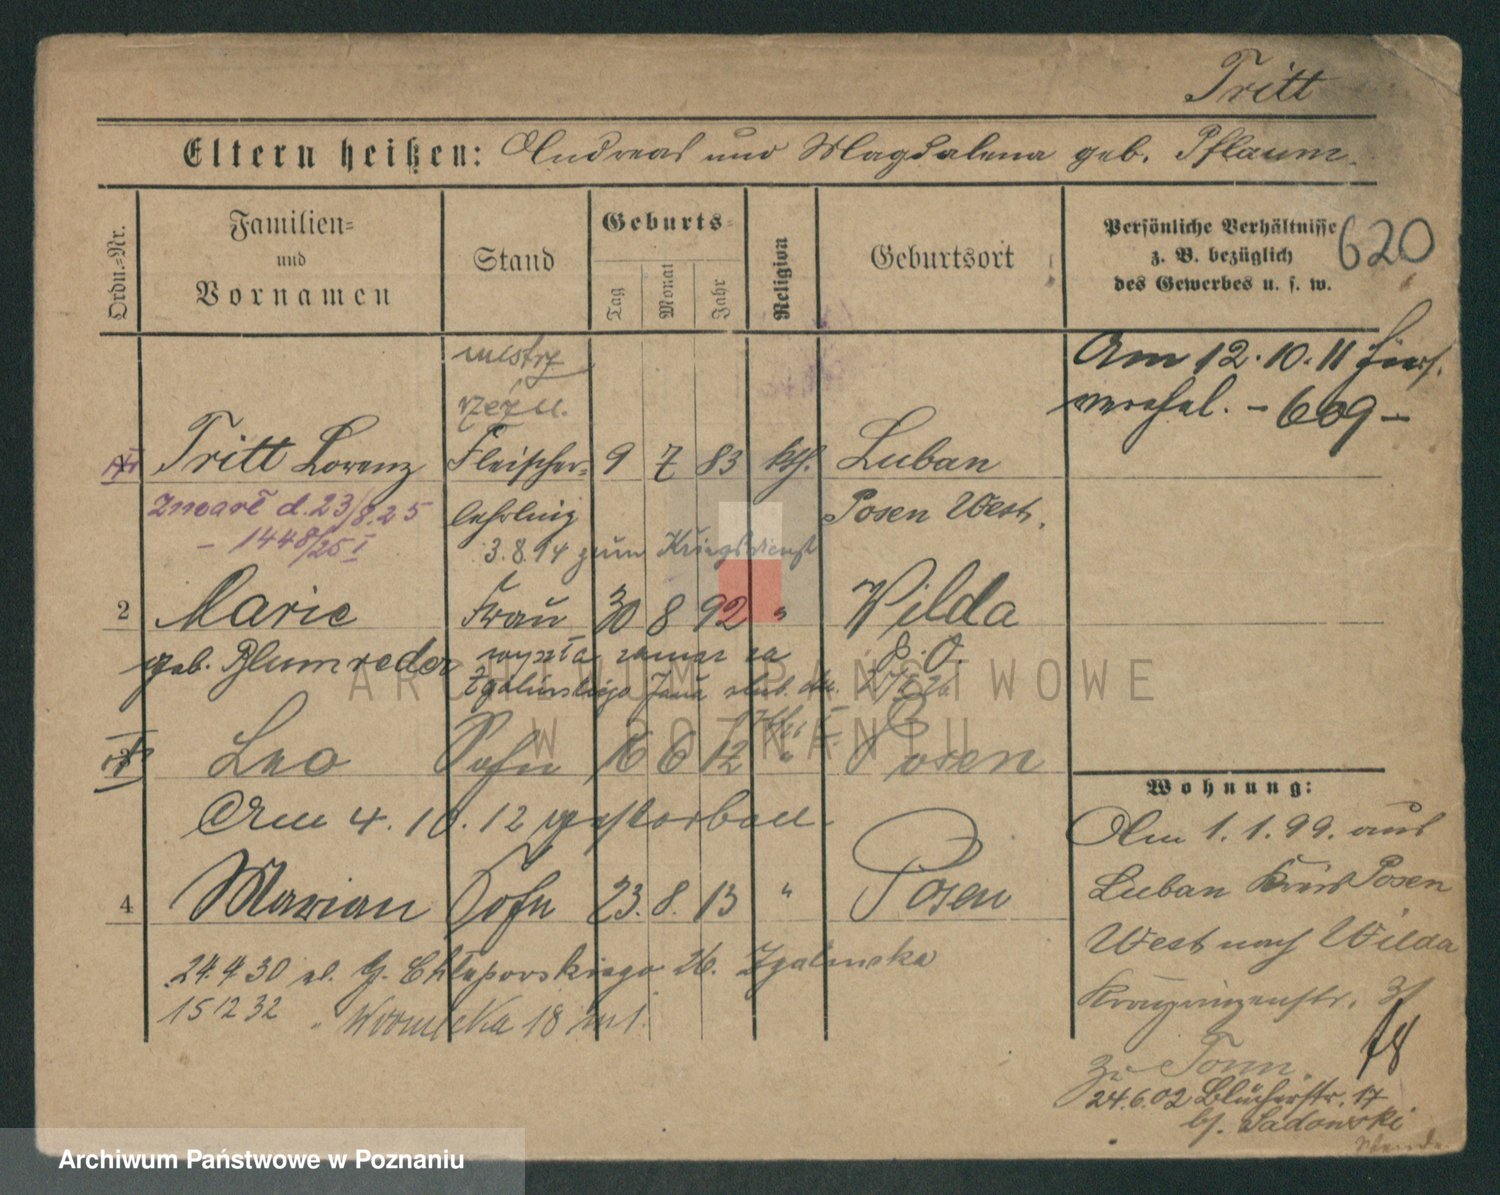 Tritt
Eltern heißen: Andreas und Magdalena geb. Pflaum.
Ordn.=Nr.
Familien= und Vornamen
Stand
Geburts=
Tag
Monat
Jahr
Religion
Geburtsort
Persönliche Verhältnisse
z. B. bezüglich
des Gewerbes u. s. w.
620
Am 12.10.11 hier
verehel. – 609 –
mistrz
rzeźn.
Tritt Lorenz Fleischer= 9 7 83 kth. Luban
Zmarł d. 23/8.25 lehrling Posen West.
– 1448/25 I
3.8.14 zum Kriegsdienst
2 Marie Frau 30 8 92 " Wilda
geb. Blumreder wyszła zamąż za P. O.
Zgolińskiego Jana
Leo Sohn 16 6 12 " Posen
Am 4.10.12 gestorben
4 Marian Sohn 23. 8. 13 " Posen
24.4.30 ul. G. Chłapowskiego 26.
15 12 32 " 18 m 1.
Wohnung:
Am 1.1.99. aus
Luban Kreis Posen
West nach Wilda
Kronprinzenstr.
78
zu Tomn.
24.6.02 Blücherstr. 17
bj. Sadowski
Wende
ARCHIWUM PAŃSTWOWE
W POZNANIU
Archiwum Państwowe w Poznaniu